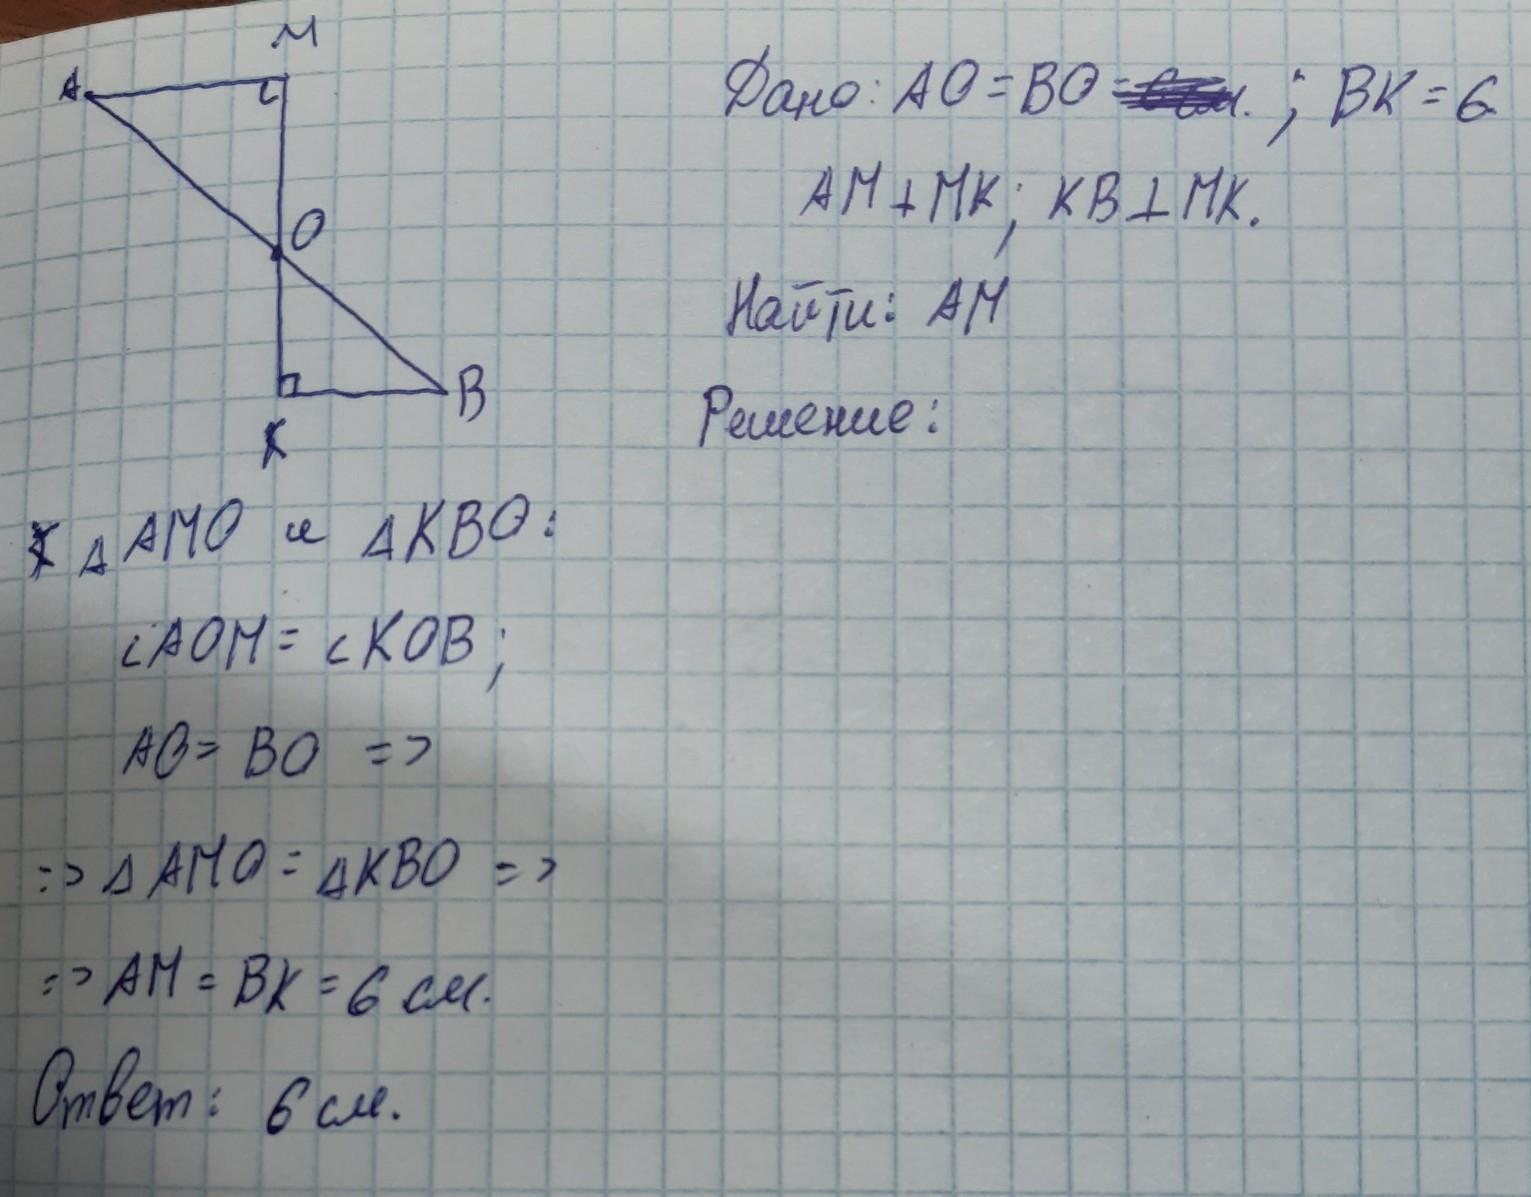 M
A
O
B
K
Дано: AO = BO = ; BK = 6
AM ⊥ MK; KB ⊥ MK.
Найти: AM
Решение:
△ AMO и △ KBO:
∠AOM = ∠KOB;
AO = BO =>
=> △ AMO = △ KBO =>
=> AM = BK = 6 см.
Ответ: 6 см.